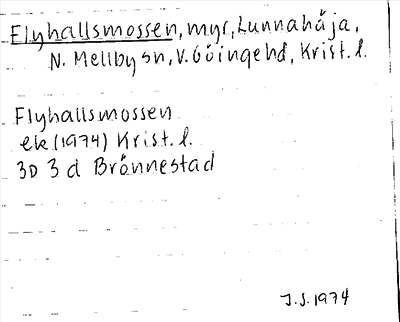 Flyhallsmossen, myr, Lunnahöja,
N. Mellby sn, V. Göingehd, Krist. l.
Flyhallsmossen
ek (1974) Krist. l.
3D 3d Brönnestad
J.S. 1974